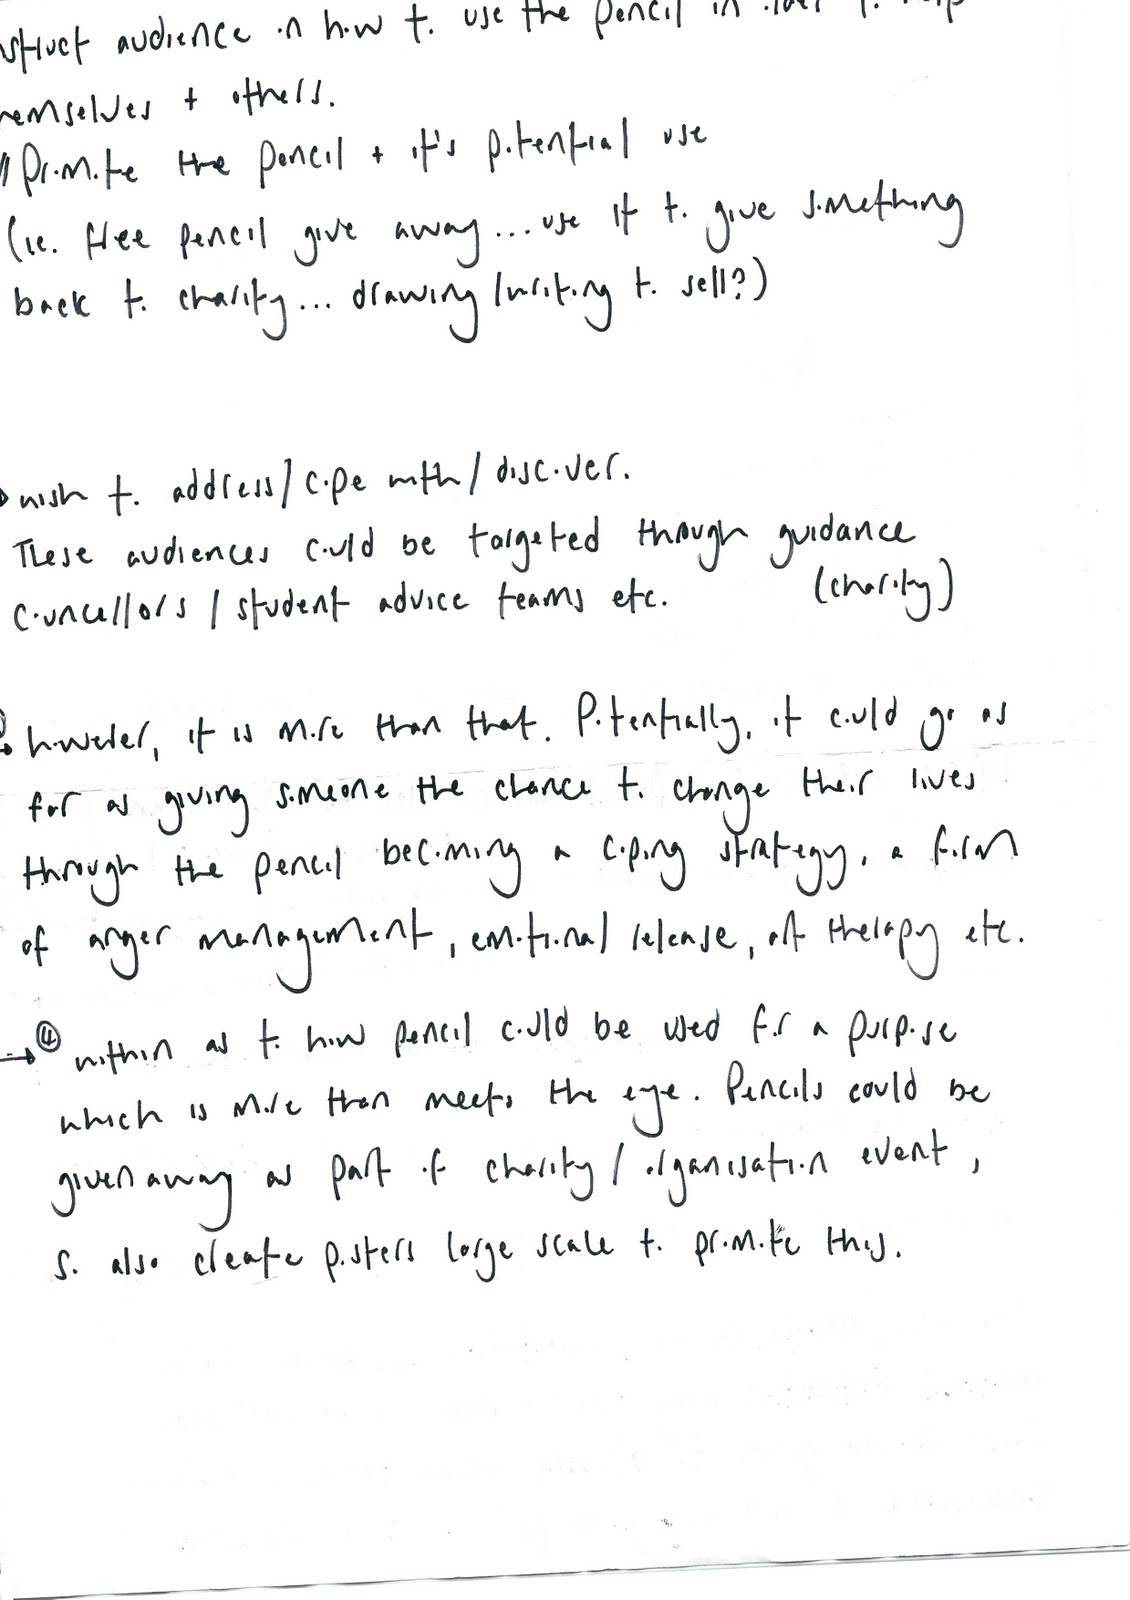 struct audience on how to use the pencil in order to help
themselves + others.
Promote the pencil + it's potential use
(ie. free pencil give away... use it to give something
back to charity... drawing/writing to sell?)
wish to address/cope with/discover.
These audiences could be targeted through guidance
councellors/student advice teams etc. (charity)
however, it is more than that. Potentially, it could go as
far as giving someone the chance to change their lives
through the pencil becoming a coping strategy, a form
of anger management, emotional release, art therapy etc.
→ ④ within as to how pencil could be used for a purpose
which is more than meets the eye. Pencils could be
given away as part of charity/organisation event,
so also create posters large scale to promote this.